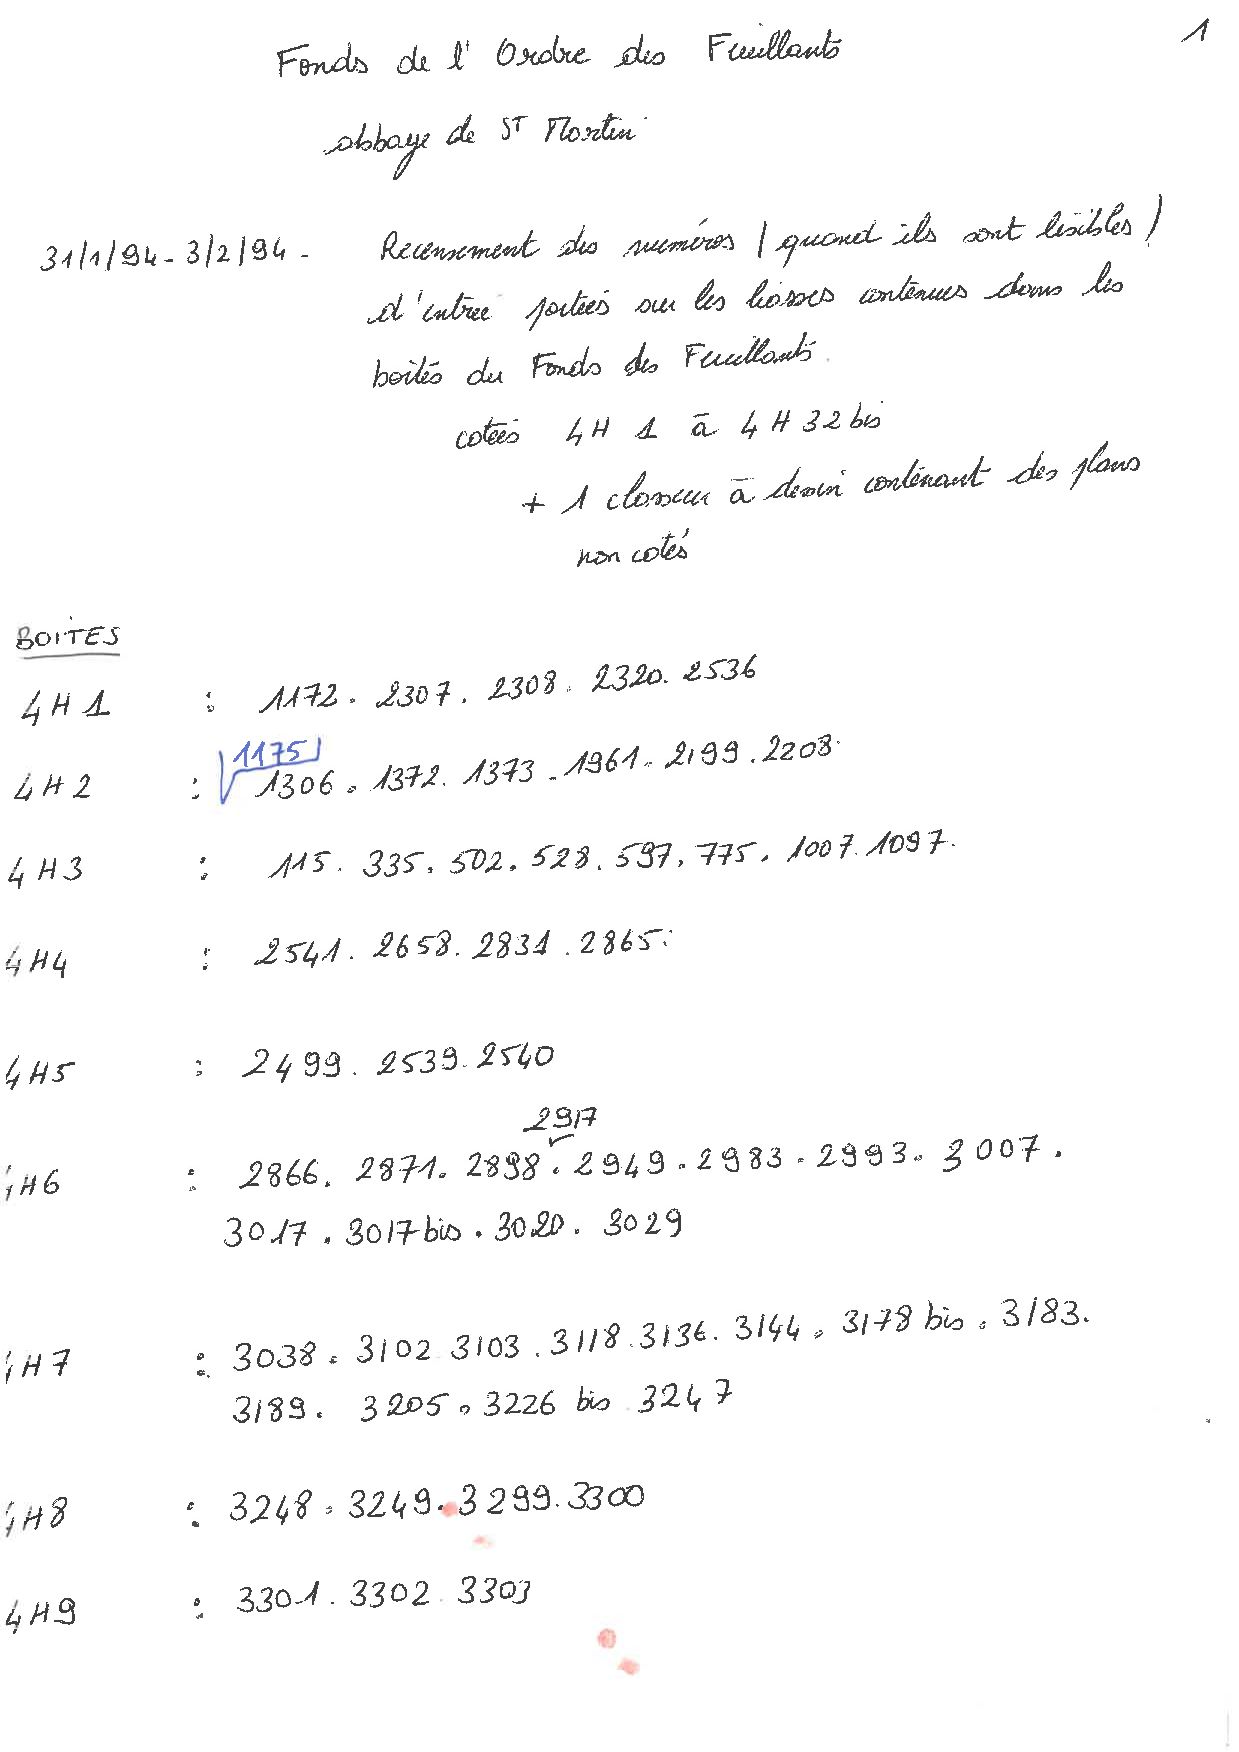 1
Fonds de l'Ordre des Feuillants
abbaye de ST Martin
31/1/94 - 3/2/94 - Recensement des numéros (quand ils sont lisibles)
d'entrée portées sur les liasses contenues dans les
boîtes du Fonds des Feuillants.
cotées 4H 1 à 4 H 32 bis
+ 1 classeur à dessin contenant des plans
non cotés
BOITES
4H1 : 1172. 2307. 2308. 2320. 2536
1175
4H2 : 1306. 1372. 1373 - 1961. 2199. 2208.
4H3 : 115. 335. 502. 528. 597. 775. 1007. 1097.
4H4 : 2541. 2658. 2831. 2865.
4H5 : 2499. 2539. 2540
2917
4H6 : 2866. 2871. 2898. 2949. 2983. 2993. 3007.
3017. 3017 bis. 3020. 3029
4H7 : 3038. 3102 3103. 3118. 3136. 3144. 3178 bis. 3183.
3189. 3205. 3226 bis 3247
4H8 : 3248. 3249. 3299. 3300
4H9 : 3301. 3302 3303